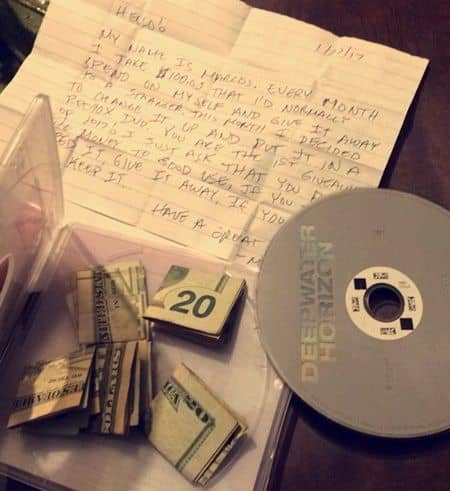 HELLO!
1/2/17
MY NAME IS MARCOS. EVERY MONTH
I TAKE $100.00 THAT I'D NORMALLY
SPEND ON MYSELF AND GIVE IT AWAY
TO A STRANGER. THIS MONTH I DECIDED
TO CHANGE IT UP AND PUT IT IN A
REDBOX DVD. YOU ARE THE 1ST GIVEAWAY
OF 2017! I JUST ASK THAT YOU
MONEY TO GOOD USE. IF YOU
IT, GIVE IT AWAY. IF YOU
KEEP IT.
HAVE A GREAT
DEEPWATER
HORIZON
20
20